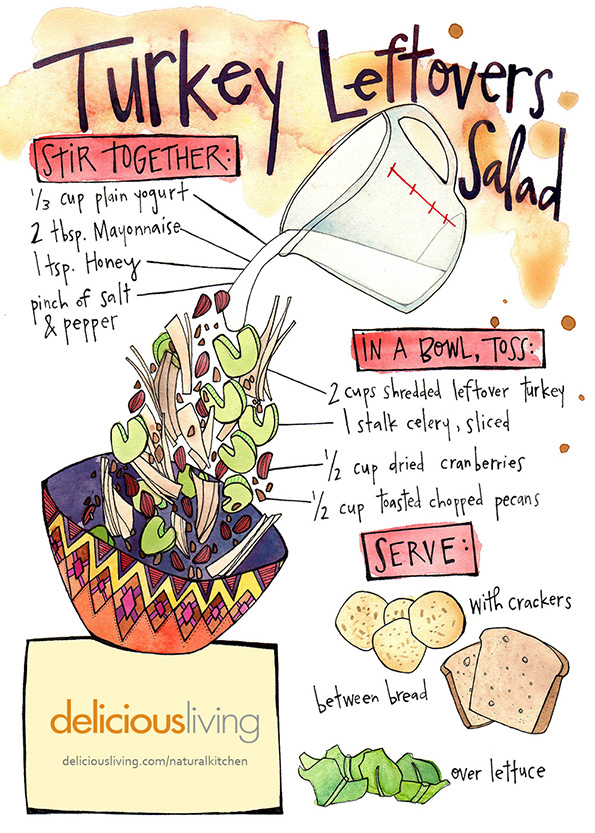 Turkey Leftovers
Salad
STIR TOGETHER:
1/3 cup plain yogurt
2 tbsp. Mayonnaise
1 tsp. Honey
pinch of salt
& pepper
IN A BOWL, TOSS:
2 cups shredded leftover turkey
1 stalk celery, sliced
1/2 cup dried cranberries
1/2 cup toasted chopped pecans
SERVE:
with crackers
between bread
over lettuce
deliciousliving
deliciousliving.com/naturalkitchen